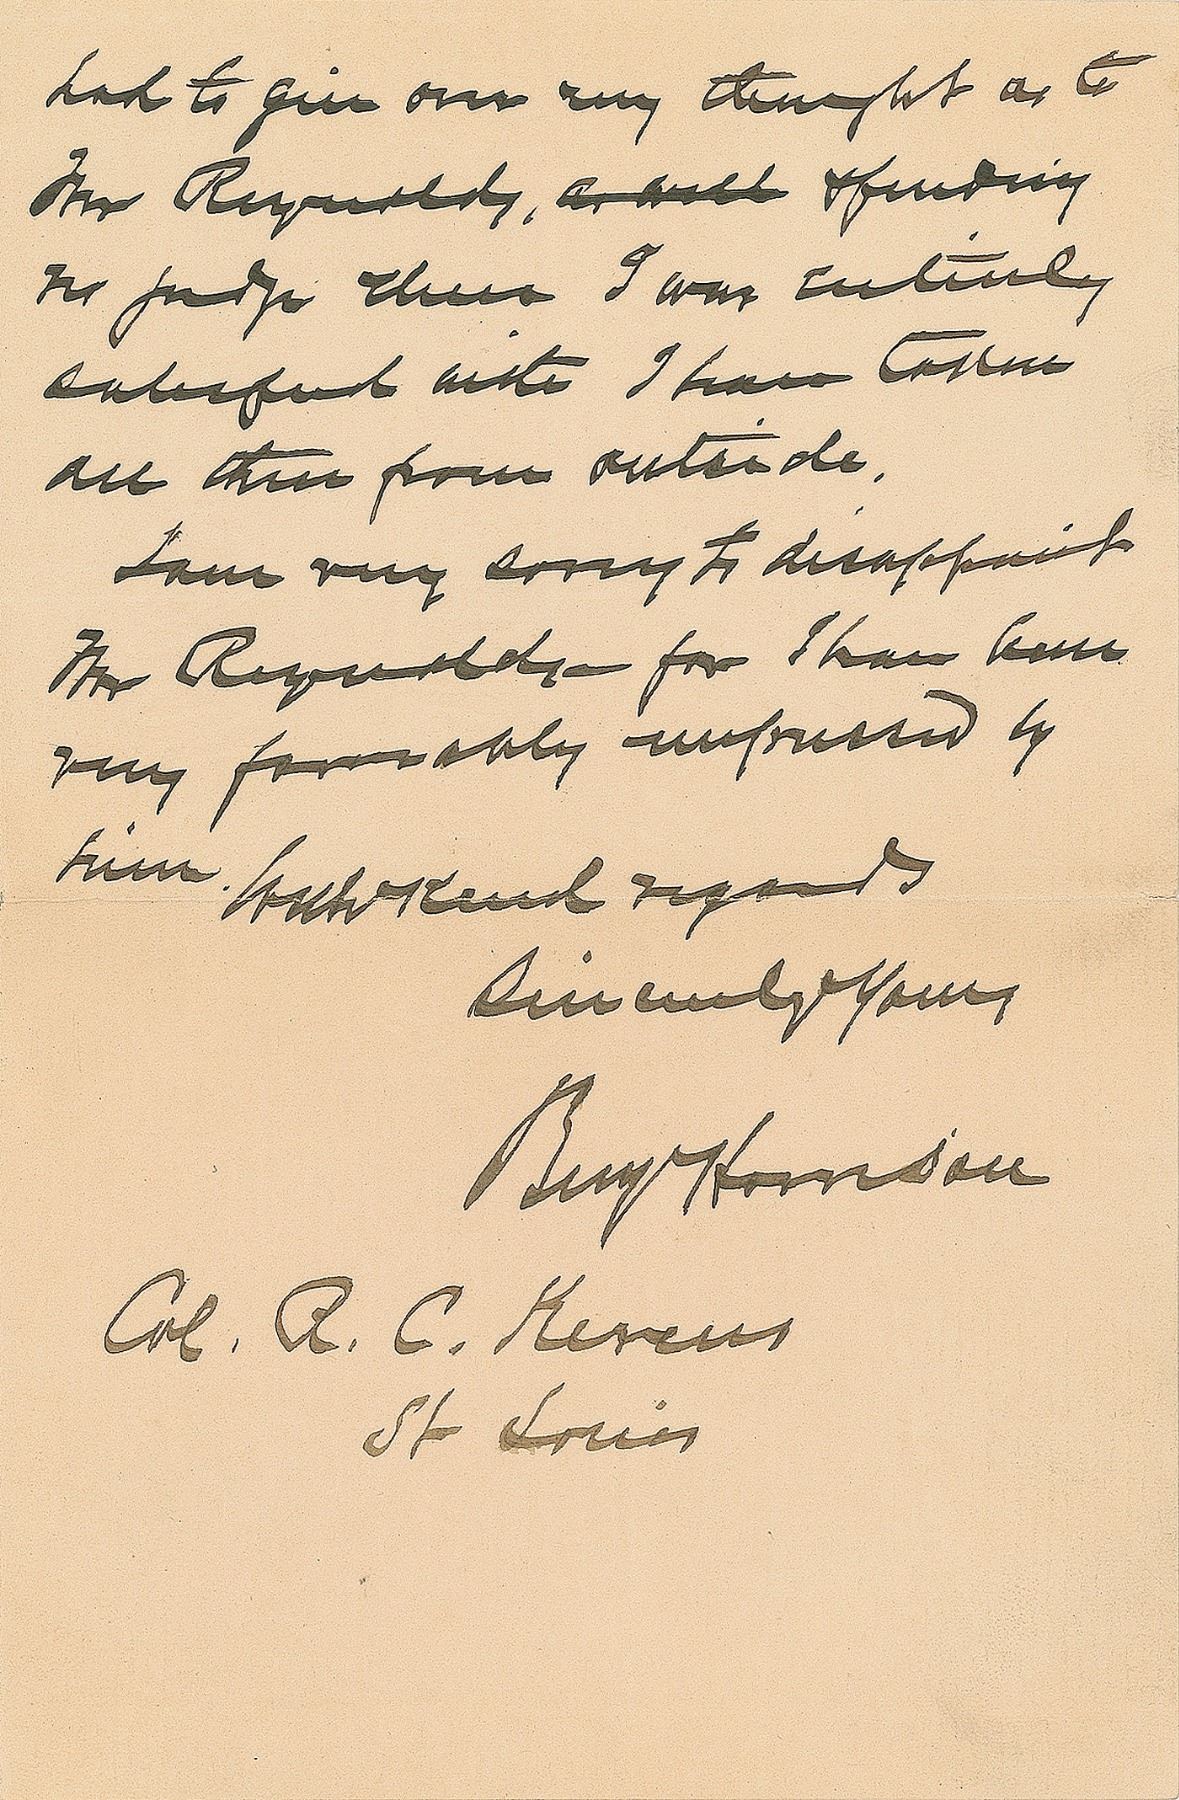 had to give over my thought as to
Mr Reynolds, as well & finding
no judge there I was entirely
satisfied with I have taken
all three from outside.
I am very sorry to disappoint
Mr Reynolds– for I have been
very favorably impressed by
him. With kind regards
Sincerely Yours
Benj Harrison
Col. R. C. Kerens
St Louis